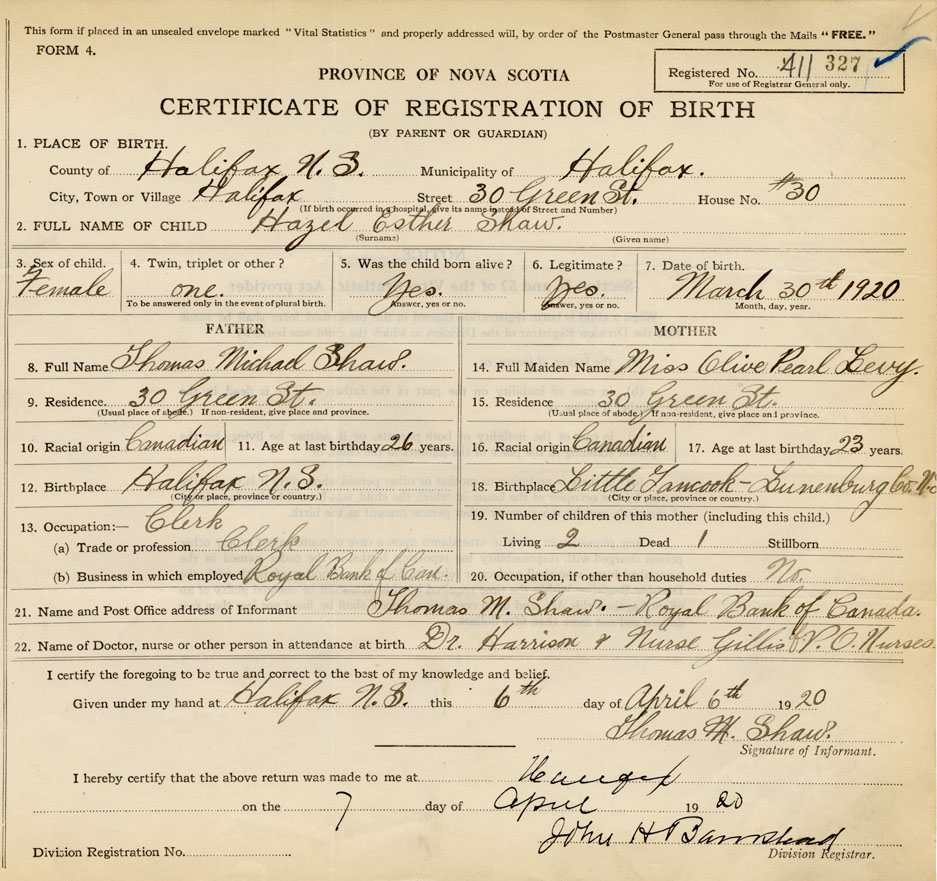 This form if placed in an unsealed envelope marked "Vital Statistics" and properly addressed will, by order of the Postmaster General pass through the Mails "FREE."
FORM 4.
PROVINCE OF NOVA SCOTIA
Registered No. 411 327
For use of Registrar General only.
CERTIFICATE OF REGISTRATION OF BIRTH
(BY PARENT OR GUARDIAN)
1. PLACE OF BIRTH.
County of Halifax N.S. Municipality of Halifax.
City, Town or Village Halifax Street 30 Green St. House No. #30
(If birth occurred in a hospital, give its name instead of Street and Number)
2. FULL NAME OF CHILD Hazel Esther Shaw.
(Surname) (Given name)
3. Sex of child. 4. Twin, triplet or other? 5. Was the child born alive? 6. Legitimate? 7. Date of birth.
Female one. Yes. Yes. March 30th 1920
To be answered only in the event of plural birth. Answer, yes or no. Answer, yes or no. Month, day, year.
FATHER MOTHER
8. Full Name Thomas Michael Shaw. 14. Full Maiden Name Miss Olive Pearl Levy.
9. Residence. 30 Green St. 15. Residence 30 Green St.
(Usual place of abode.) If non-resident, give place and province. (Usual place of abode.) If non-resident, give place and province.
10. Racial origin Canadian 11. Age at last birthday 26 years. 16. Racial origin Canadian 17. Age at last birthday 23 years.
12. Birthplace Halifax N.S. 18. Birthplace Little Tancook - Lunenburg Co.
(City or place, province or country.) (City or place, province or country.)
13. Occupation:— Clerk 19. Number of children of this mother (including this child.)
(a) Trade or profession Clerk Living 2 Dead 1 Stillborn
(b) Business in which employed Royal Bank of Can. 20. Occupation, if other than household duties No.
21. Name and Post Office address of Informant Thomas M. Shaw. - Royal Bank of Canada.
22. Name of Doctor, nurse or other person in attendance at birth Dr. Harrison & Nurse Gillis V.O. Nurses
I certify the foregoing to be true and correct to the best of my knowledge and belief.
Given under my hand at Halifax N.S. this 6th day of April 6th 1920
Thomas M. Shaw.
Signature of Informant.
I hereby certify that the above return was made to me at Halifax
on the 7 day of April 1920
John H Barnstead
Division Registrar.
Division Registration No.